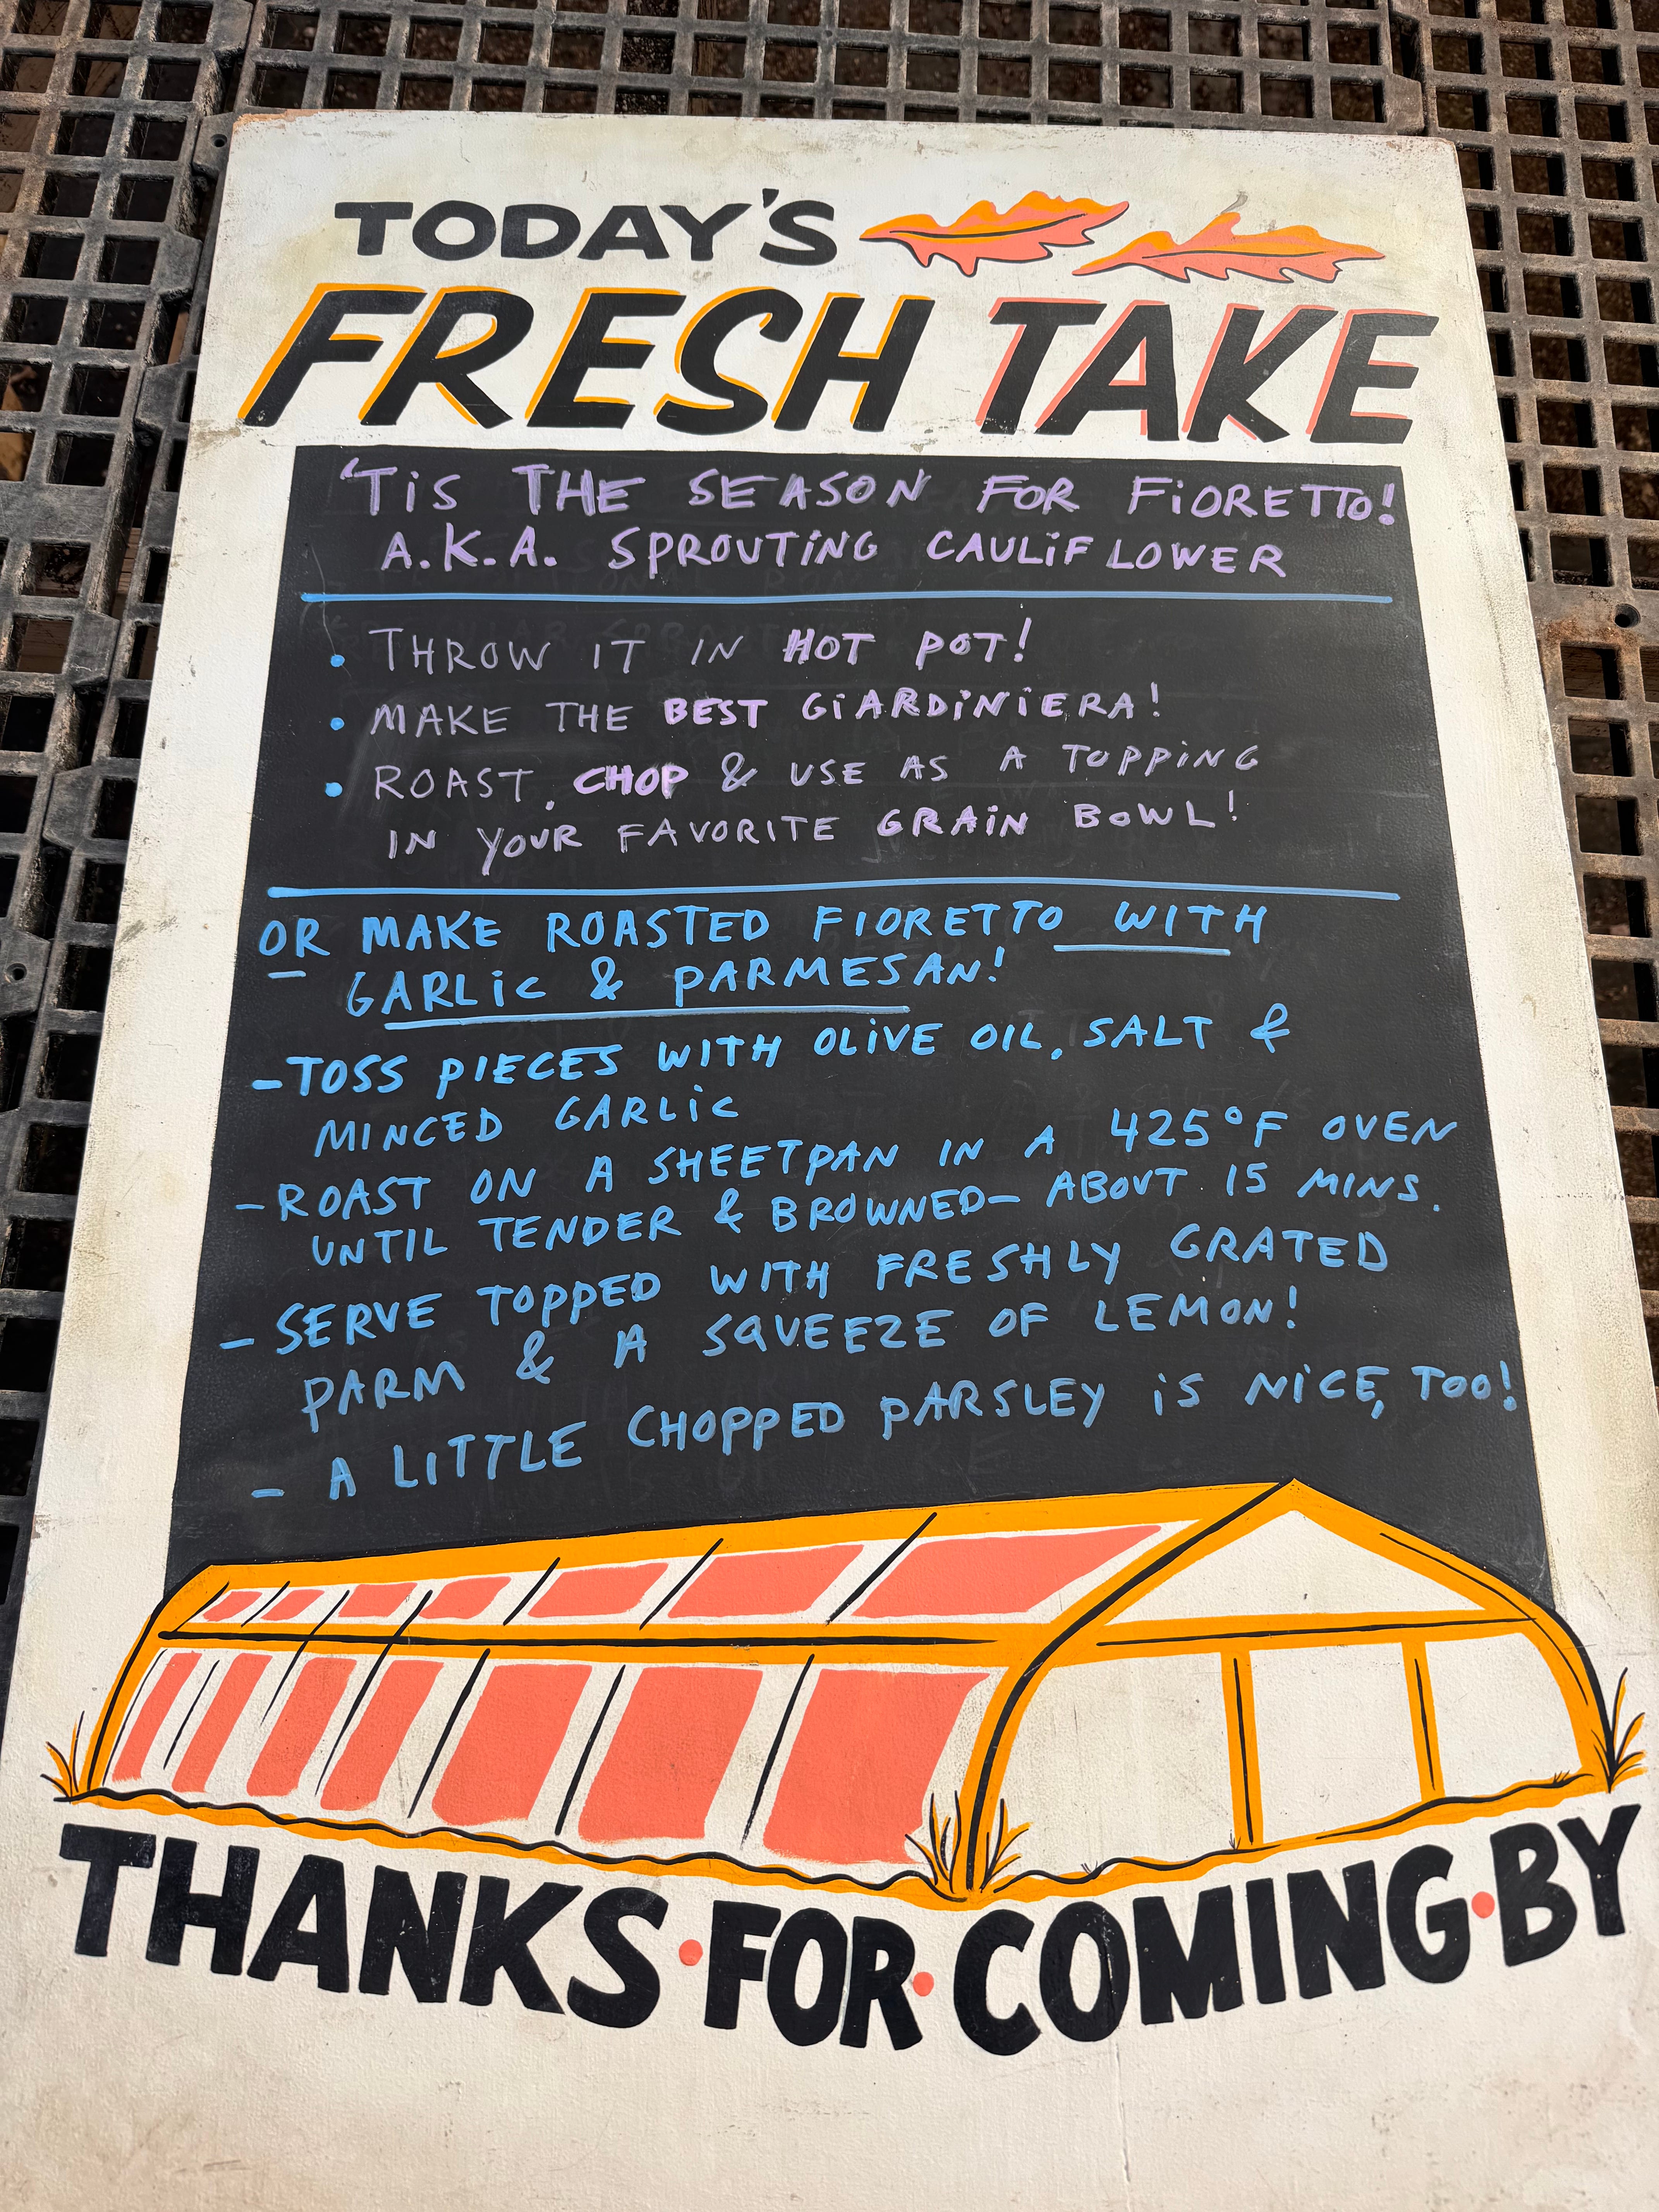 TODAY'S
FRESH TAKE
'TiS THE SEASON FOR FiORETTO!
A.K.A. SPROUTiNG CAULiFLOWER
• THROW IT IN HOT POT!
• MAKE THE BEST GiARDiNiERA!
• ROAST, CHOP & USE AS A TOPPiNG
IN YOUR FAVORITE GRAiN BOWL!
OR MAKE ROASTED FIORETTO WITH
GARLiC & PARMESAN!
- TOSS PIECES WITH OLiVE OIL, SALT &
MINCED GARLiC
- ROAST ON A SHEETPAN IN A 425°F OVEN
UNTIL TENDER & BROWNED - ABOUT 15 MINS.
- SERVE TOPPED WITH FRESHLY GRATED
PARM & A SQUEEZE OF LEMON!
- A LITTLE CHOPPED PARSLEY iS NiCE, TOO!
THANKS • FOR • COMING • BY